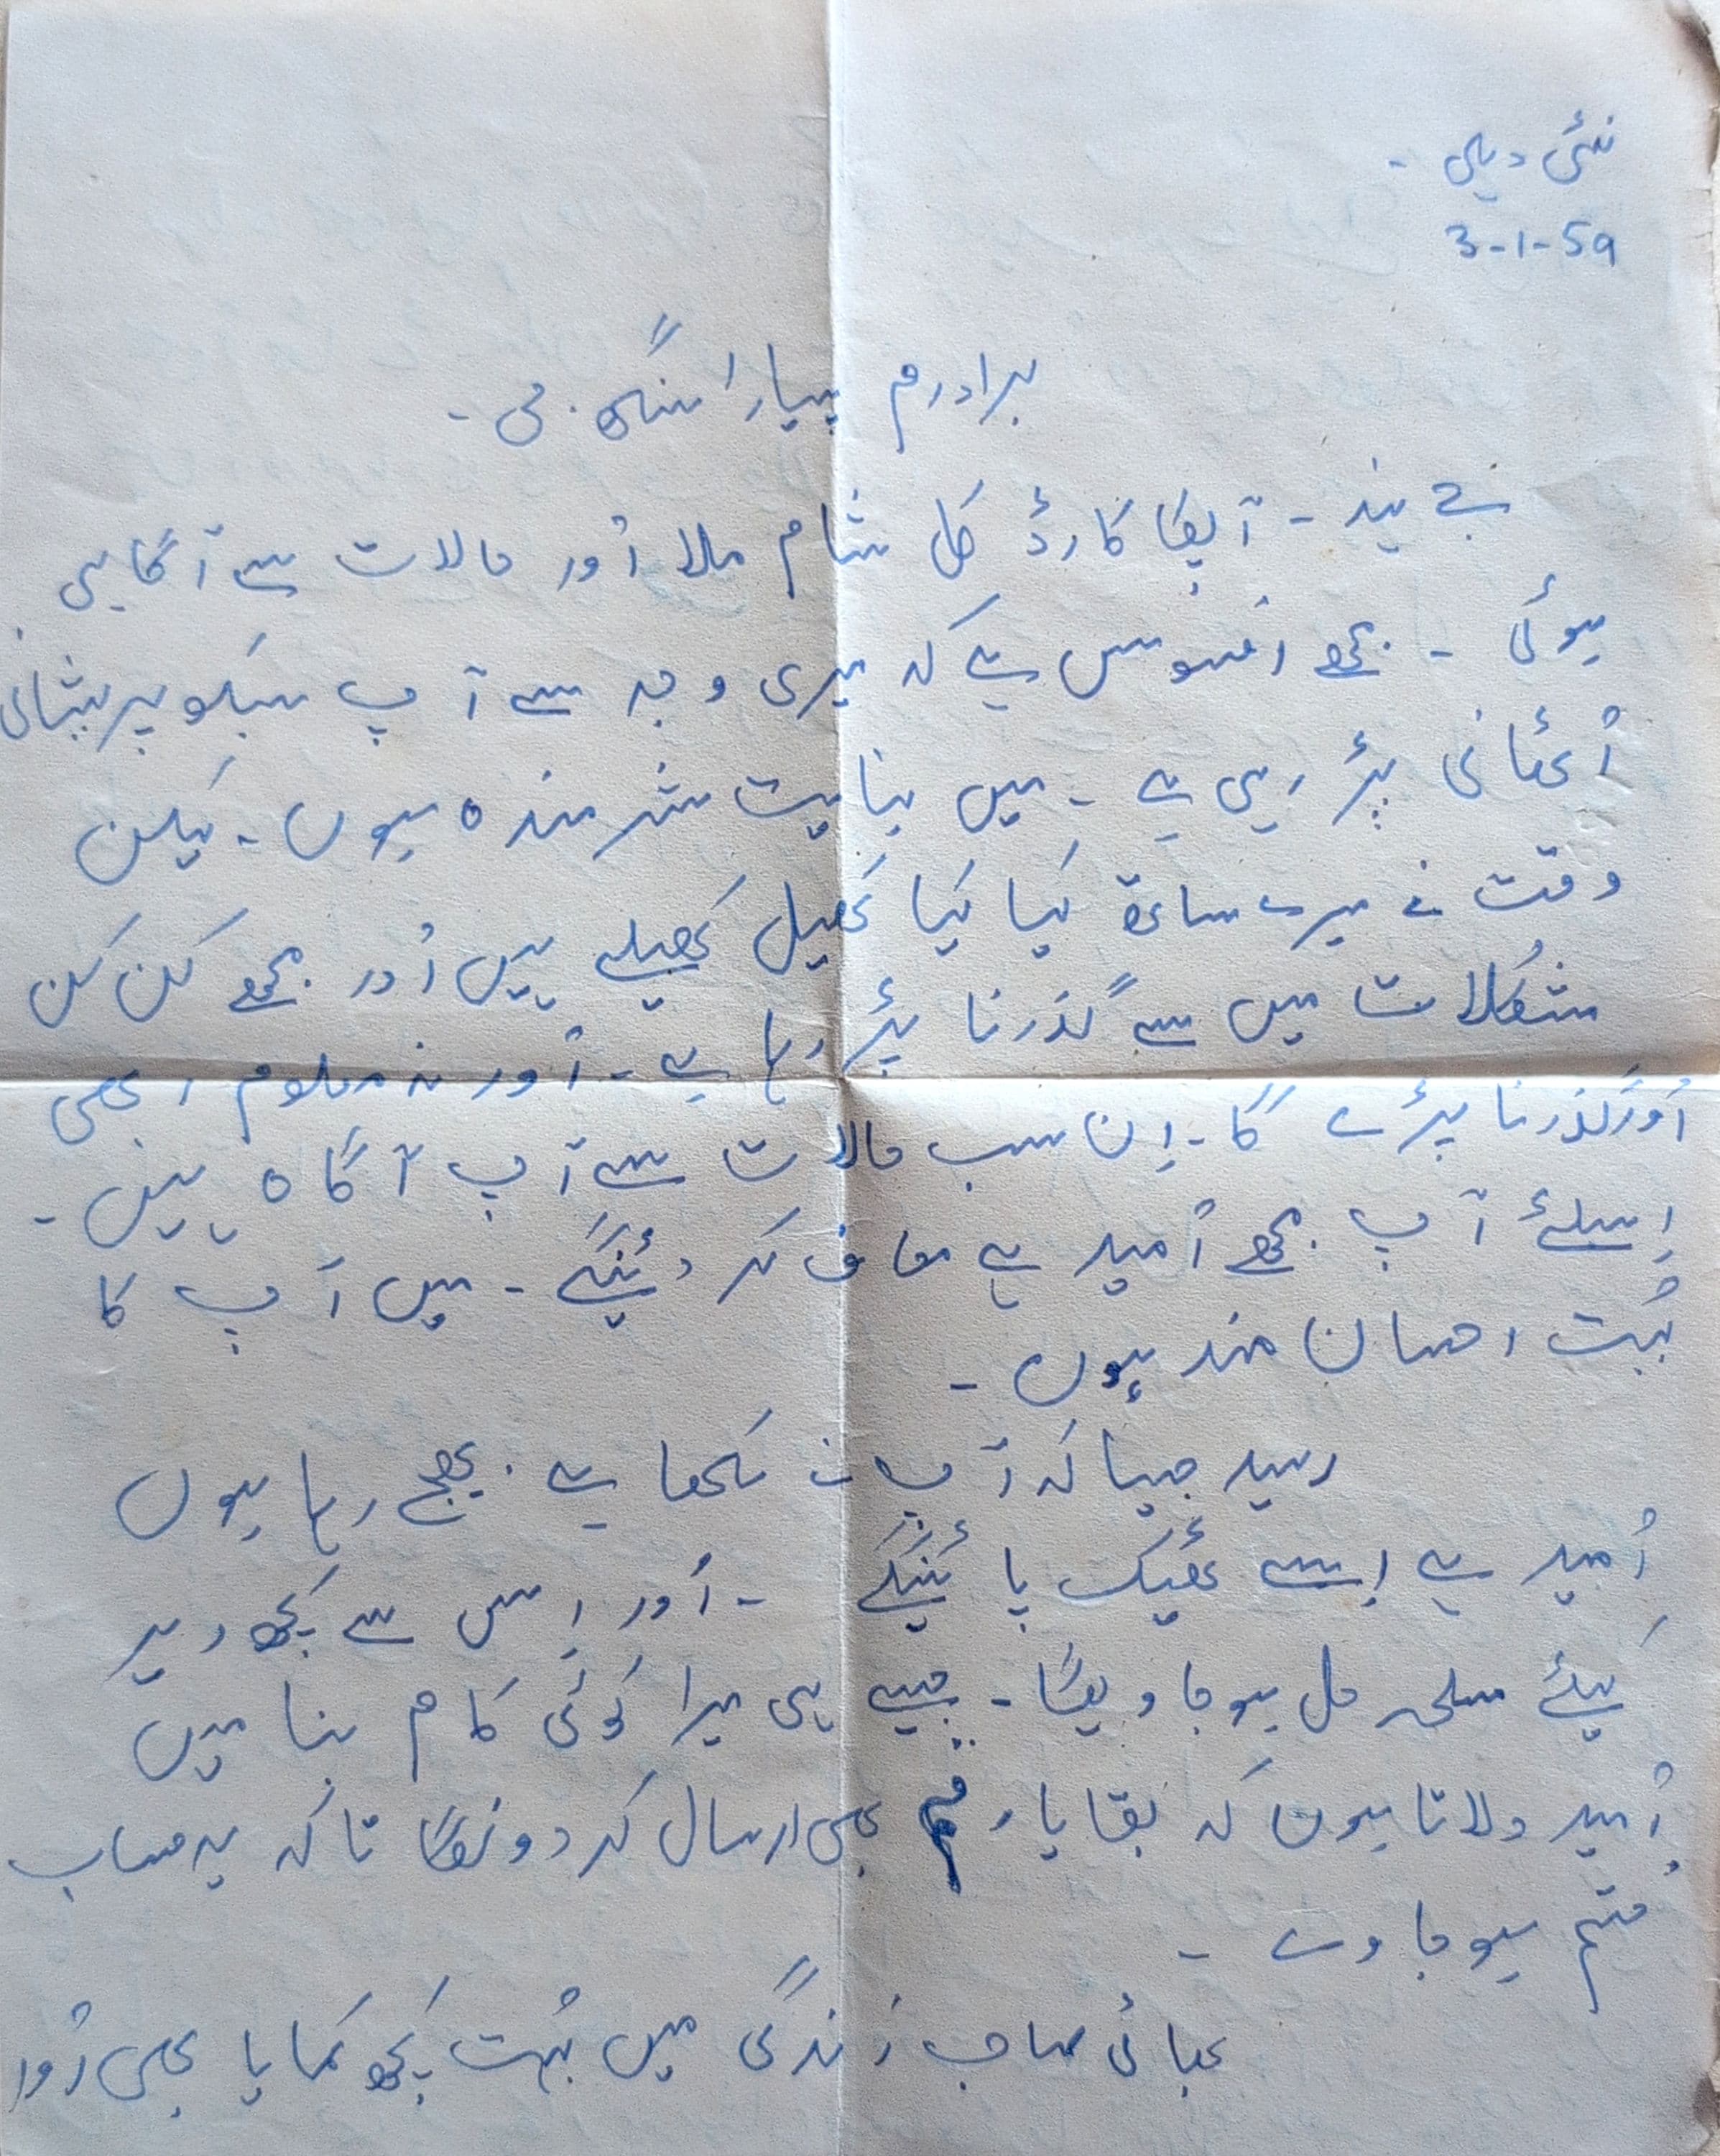 نئی دہلی -
3-1-59
برادرم پیارا سنگھ جی -
جے ہند - آپکا کارڈ کل شام ملا اور حالات سے آگاہی
ہوئی - مجھے افسوس ہے کہ میری وجہ سے آپ سبکو پریشانی
اُٹھانی پڑ رہی ہے - میں نہایت شرمندہ ہوں - لیکن
وقت نے میرے ساتھ کیا کیا کھیل کھیلے ہیں اُور مجھے کن کن
مشکلات میں سے گذرنا پڑ رہا ہے - اُور نہ معلوم ابھی
اُور گذرنا پڑے گا - اِن سب حالات سے آپ آگاہ ہیں -
اِسلئے آپ مجھے اُمید ہے معاف کر دئینگے - میں آپ کا
بُہت احسان مند ہوں -
رسید جیسا کہ آپ نے لکھا ہے بھیج رہا ہوں
اُمید ہے اِسے ٹھیک پائینگے - اُور اِس سے کچھ دیر
کیلئے مسلہ حل ہو جاویگا - جیسے ہی میرا کوئی کام بنا میں
اُمید دلاتا ہوں کہ بقایا رقم بھی ارسال کر دونگا تاکہ یہ حساب
ختم ہو جاوے -
بھائی صاحب زندگی میں بُہت کچھ کمایا بھی اُور